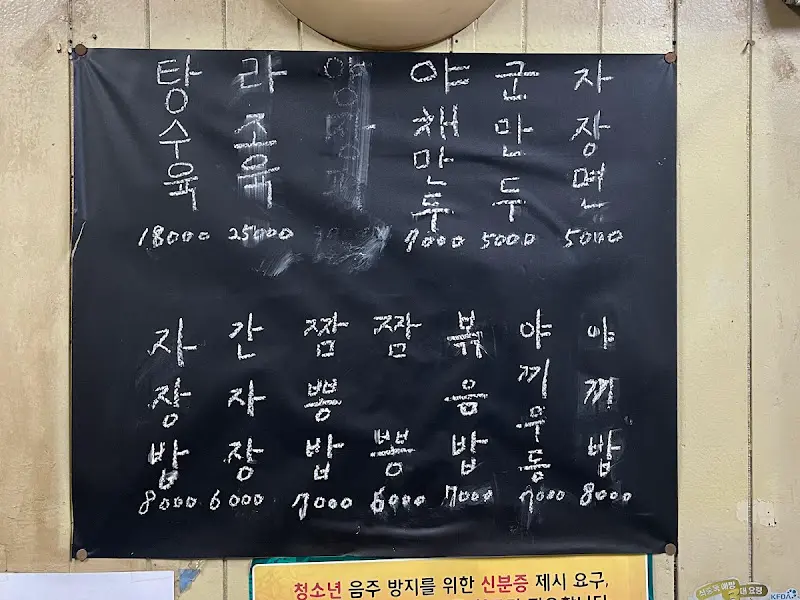 탕수육 18000
라조육 25000
야채만두 7000
군만두 5000
자장면 5000
자장밥 8000
간자장 6000
짬뽕밥 7000
짬뽕 6000
볶음밥 7000
야끼우동 7000
야끼밥 8000
청소년 음주 방지를 위한 신분증 제시 요구,